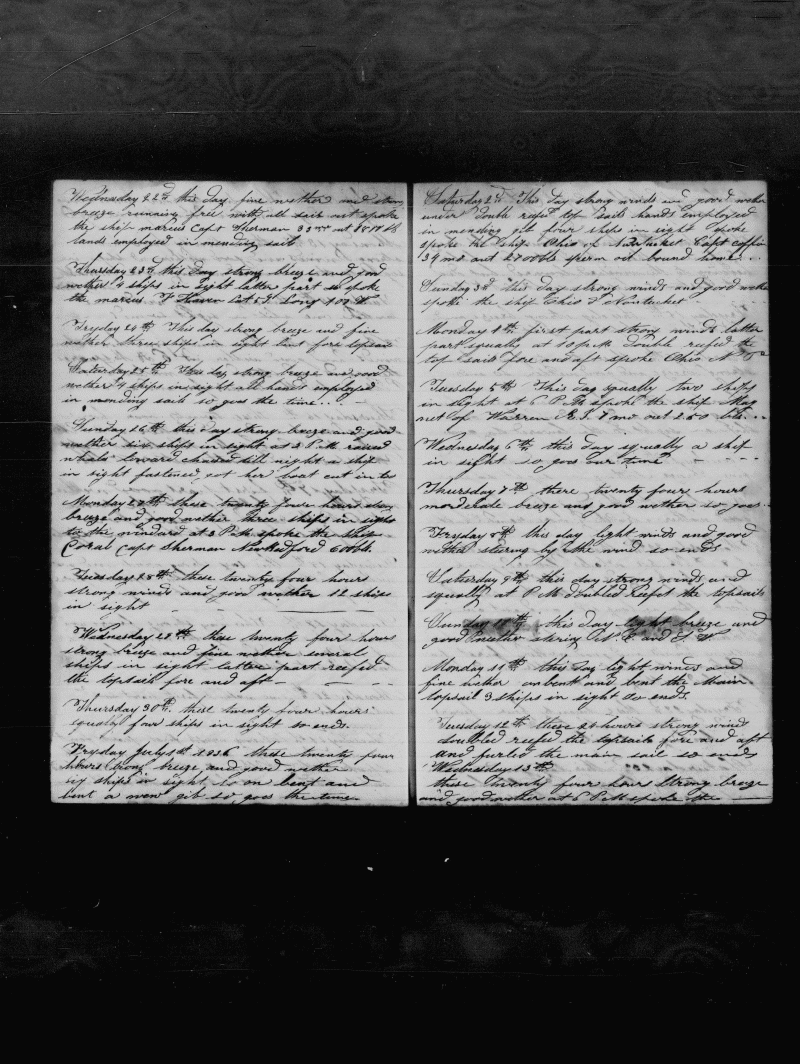 Wednesday 22nd this day fine wether and strong
breeze running free with all sail out spoke
the ship marcus Capt Sherman 33 mo out
hands employed in mending sail
Thursday 23d this day strong breeze and good
wether 4 ships in sight latter part so spoke
the marcus
Fryday 24th This day strong breeze and fine
wether three ships in sight bent fore topsail
Saturday 25th This day strong breeze and good
wether 4 ships in sight all hand employed
in mending sail so goes the time
Sunday 26th this day strong breeze and good
wether six ships in sight at 2 P.M raised
whale leward chased till night a ship
in sight fastened got her boat cut in two
Monday 27th these twenty four hours strong
breeze and good wether three ships in sight
to the windard at 3 P.M. spoke the ship
Coral Capt Sherman NewBedford 600bb.
Tuesday 28th these twenty four hours
strong winds and good wether 12 ships
in sight
Wednesday 29th these twenty four hours
strong breeze and fine wether several
ships in sight latter part reefed
the topsails fore and aft
Thursday 30th these twenty four hours
squally four ships in sight so ends.
Fryday July 1st 1836 these twenty four
hours strong breeze and good wether
six ships in sight un bent and
bent a new gib so goes the time.
Saturday 2d This day strong winds and good wether
under double reeft top sails hands employed
in mending gib four ships in sight spoke
spoke the ship Ohio of Nantucket Capt Coffin
39 mo out 2700bb sperm oil bound home
Sunday 3d this day strong winds and good wether
spoke the ship Ohio of Nantucket
Monday 4th first part strong winds latter
part squally at 10 P.M Double reefed the
top sails fore and aft spoke Ohio
Tuesday 5th This day squally two ships
in sight at 6 P.M spoke the ship Mag
net of Warren R.I. 7 mo out 250 bbls
Wednesday 6th this day squally a ship
in sight so goes our time
Thursday 7th these twenty four hours
mordehate breeze and good wether so goes
Fryday 8th this day light winds and good
wether stering by the wind so ends
Saturday 9th this day strong winds and
squally at P.M doubled Reefet the topsails
Sunday 10th this day light breeze and
good wether
Monday 11th this day light winds and
fine wether unbent and bent the Main
topsail 3 ships in sight So ends.
Tuesday 12th these 24 hours strong winds
doubled reefed the topsails fore and aft
and furled the main sail so ends
Wednesday 13th
these twenty four hours Strong breeze
and good wether at 6 P.M spoke the